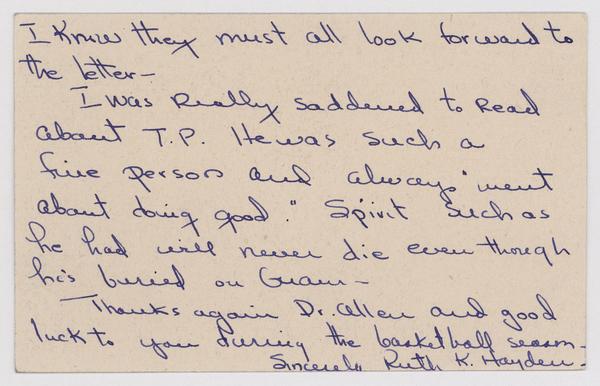 I know they must all look forward to
the letter-
I was really saddened to read
about T.P. He was such a
fine person and always "went
about doing good." Spirit such as
he had will never die even though
he's buried on Guam-
Thanks again Dr. Allen and good
luck to you during the basketball season-
Sincerely Ruth K. Hayden-